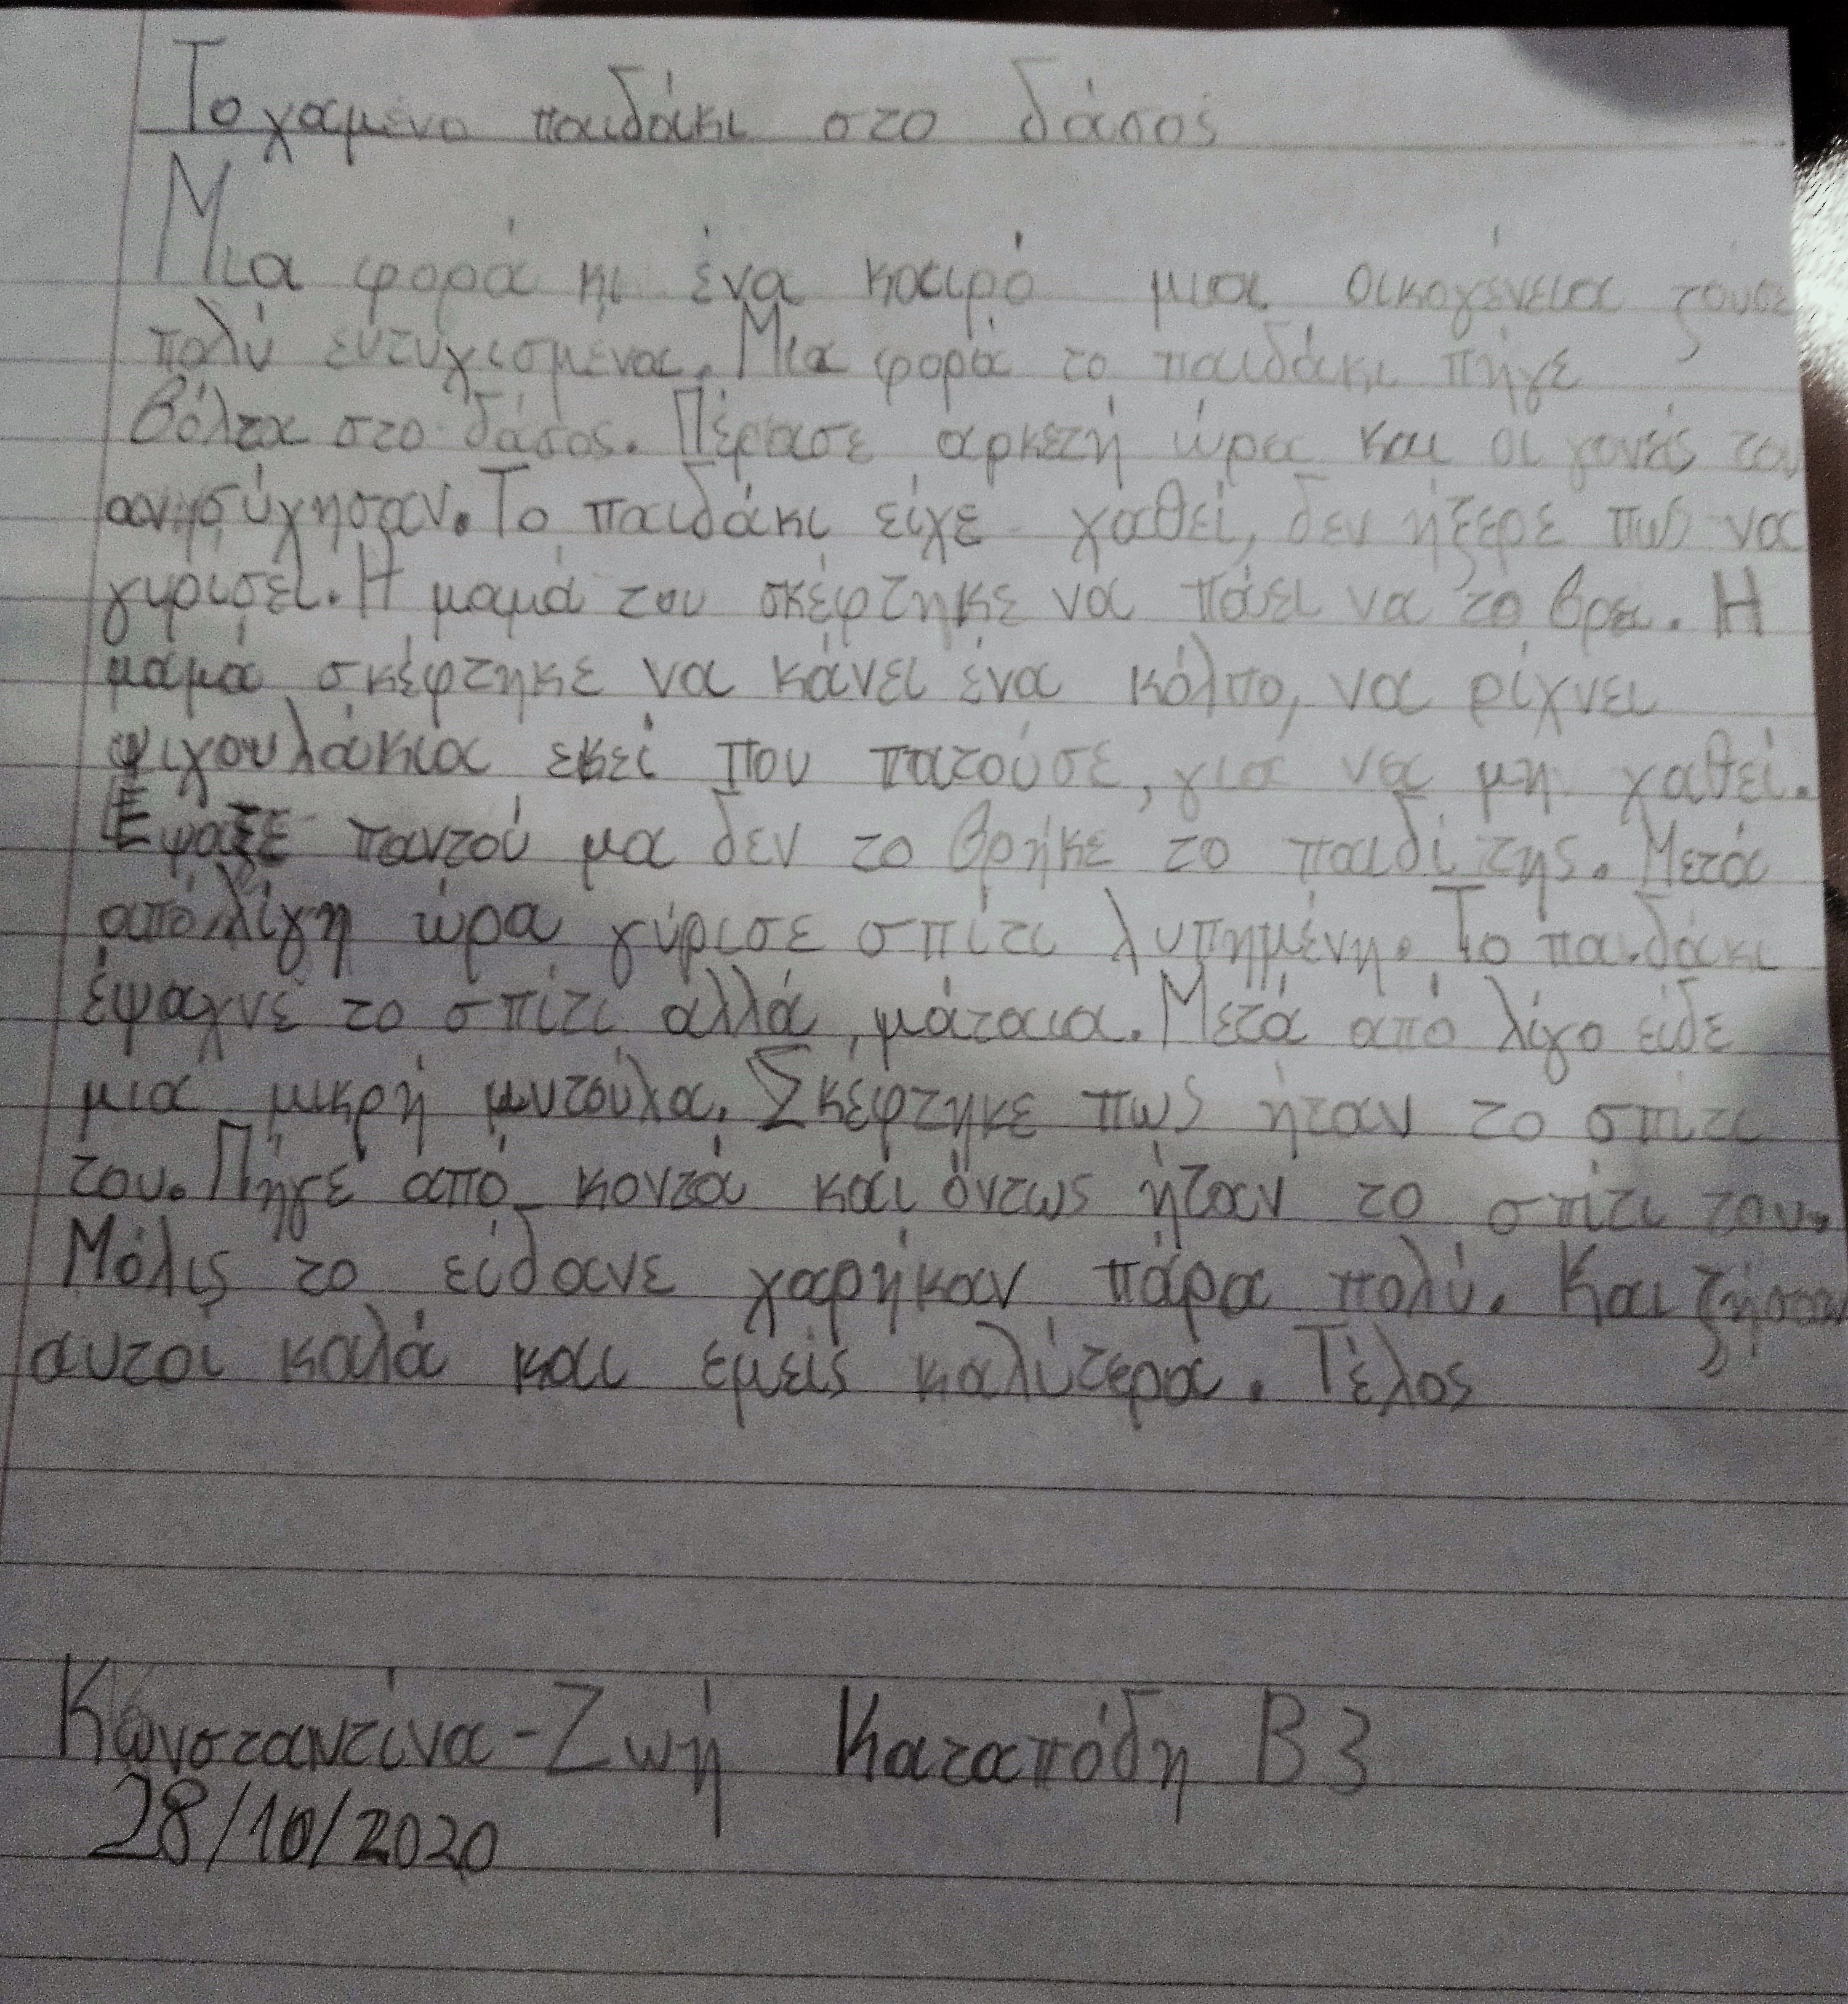 Το χαμένο παιδάκι στο δάσος
Μια φορά κι ένα καιρό μια οικογένεια ζούσε
πολύ ευτυχισμένα. Μια φορά το παιδάκι πήγε
βόλτα στο δάσος. Πέρασε αρκετή ώρα και οι γονείς του
ανησύχησαν. Το παιδάκι είχε χαθεί, δεν ήξερε πως να
γυρίσει. Η μαμά του σκέφτηκε να πάει να το βρει. Η
μαμά σκέφτηκε να κάνει ένα κόλπο, να ρίχνει
ψιχουλάκια εκεί που πατούσε, για να μη χαθεί.
Έψαξε παντού μα δεν το βρήκε το παιδί της. Μετά
από λίγη ώρα γύρισε σπίτι λυπημένη. Το παιδάκι
έψαχνε το σπίτι αλλά, μάταια. Μετά από λίγο είδε
μια μικρή μυτούλα. Σκέφτηκε πως ήταν το σπίτι
του. Πήγε από κοντά και όντως ήταν το σπίτι του.
Μόλις το είδανε χαρήκαν πάρα πολύ. Και ζήσαν
αυτοί καλά και εμείς καλύτερα. Τέλος
Κωνσταντίνα-Ζωή Καταπόδη Β3
28/10/2020